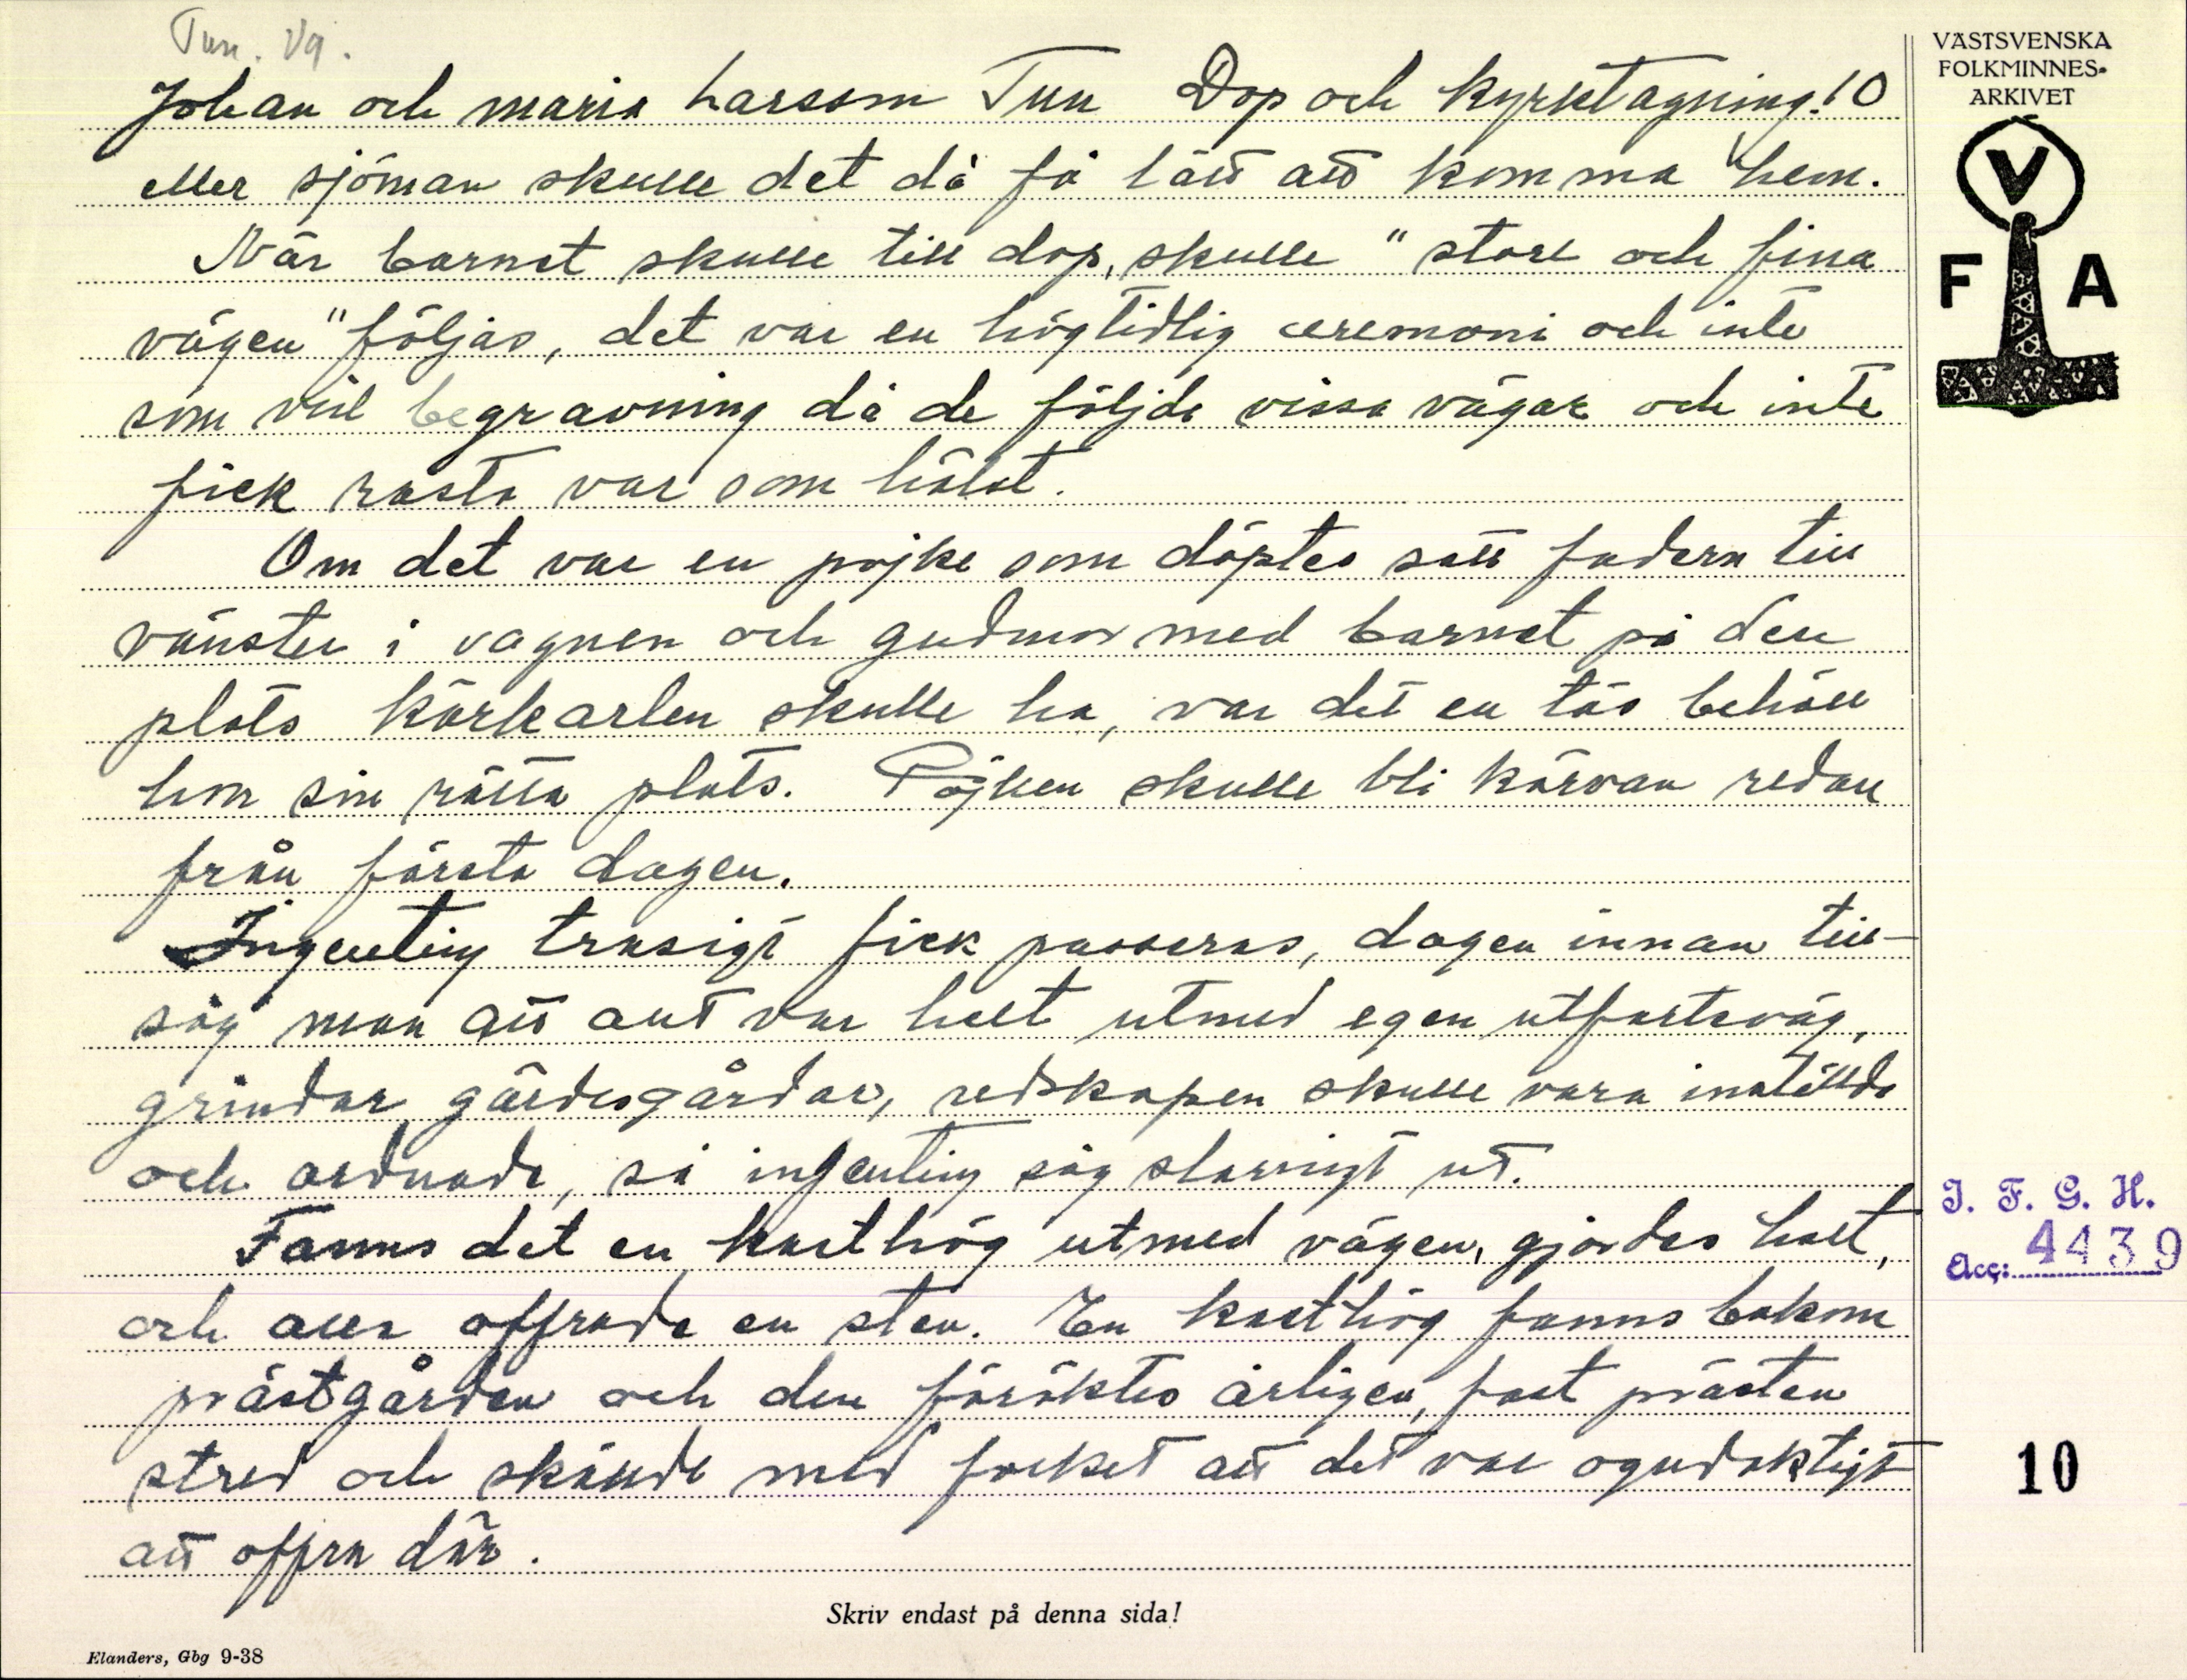 Tun. Vg.
Johan och maria Larsson Tun Dop och kyrktagning. 10
eller sjöman skulle det då få lätt att komma hem.
När barnet skulle till dop, skulle "stora och fina
vägen" följas, det var en högtidlig ceremoni och inte
som vid begravning då de följde vissa vägar och inte
fick rasta var som hälst.
Om det var en pojke som döptes satt fadern till
vänster i vagnen och gudmor med barnet på den
plats körkarlen skulle ha, var det en tös behöll
hon sin rätta plats. Pojken skulle bli körvan redan
från första dagen.
Ingenting trasigt fick passeras, dagen innan till-
såg man att allt var helt utmed egen utfartsväg,
grindar gärdesgårdar, redskapen skulle vara inställda
och ordnade, så ingenting såg slarvigt ut.
Fanns det en kasthög utmed vägen, gjordes halt,
och alla offrade en sten. En kasthög fanns bakom
prästgården och den föröktes årligen, fast prästen
stred och skällde med folket att det var ogudaktigt
att offra där.
Skriv endast på denna sida!
Elanders, Gbg 9-38
VÄSTSVENSKA
FOLKMINNES-
ARKIVET
V
F A
I. F. G. H.
Acc: 4439
10